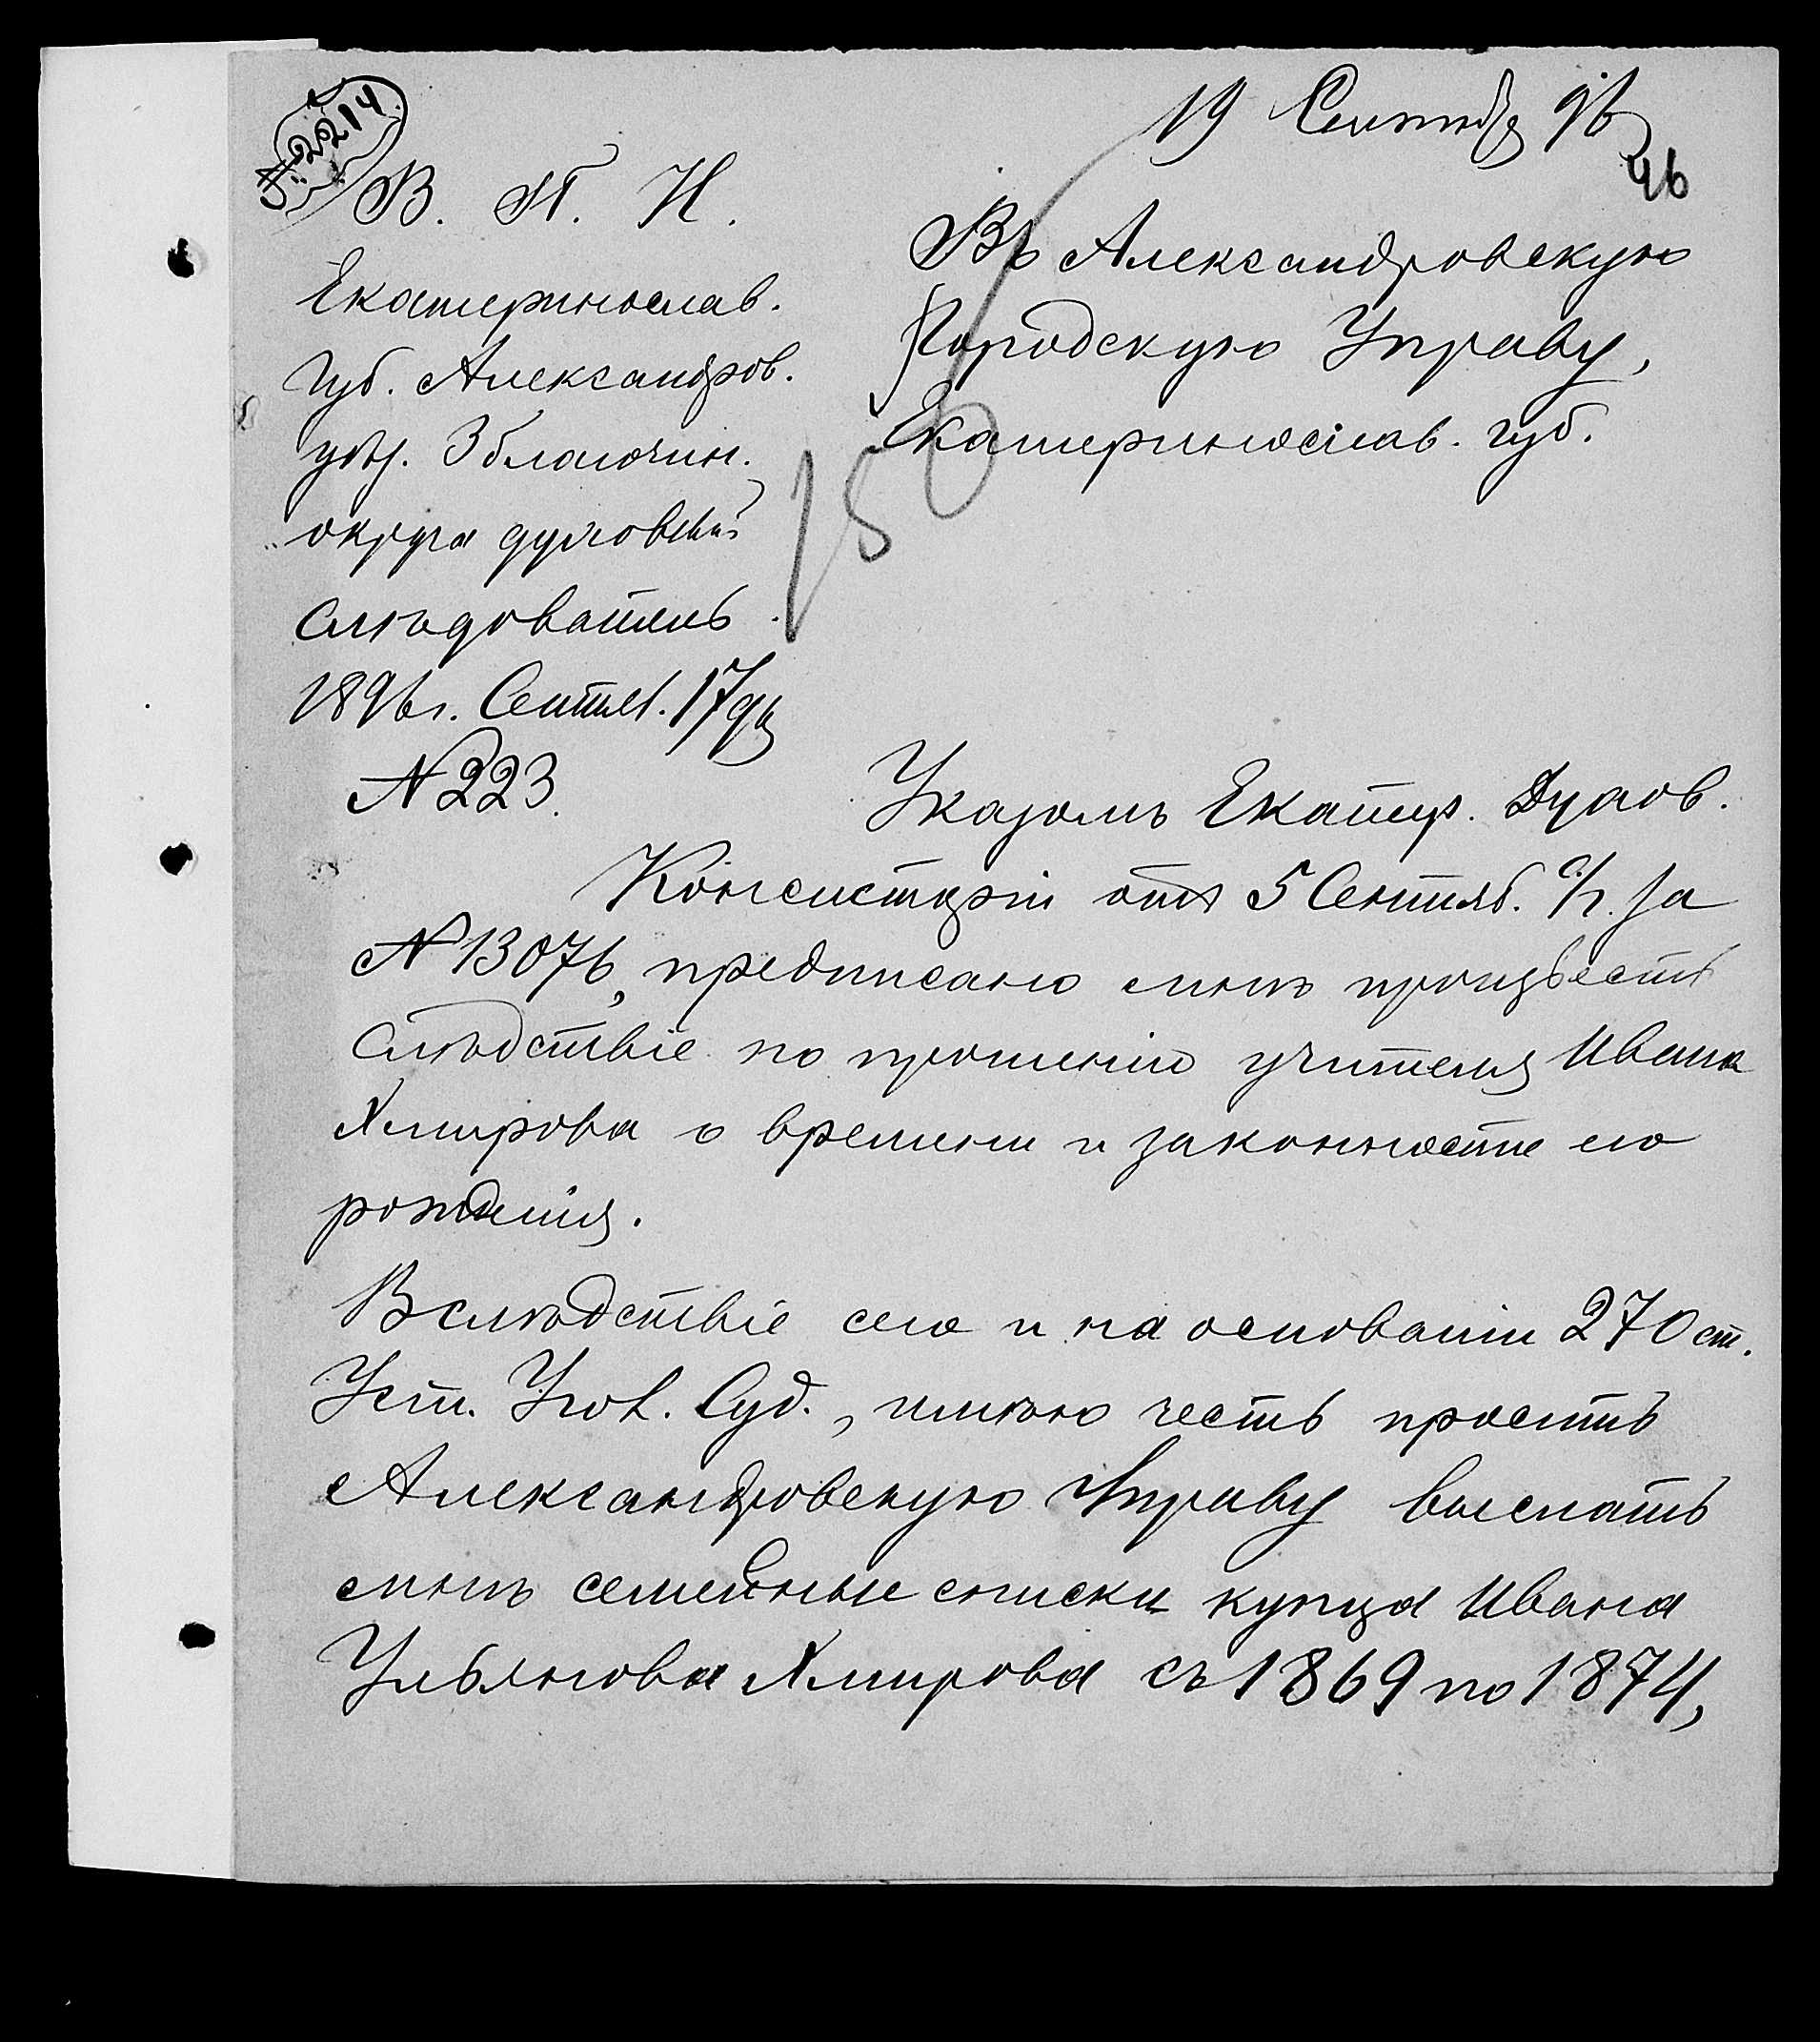 19 Сентяб 96
46
№ 2214
В. П. И.
Екатеринослав.
Губ. Александров.
уѣз. 3 благочин.
округа духовный
слѣдователь.
1896 г. Сентяб. 17 дня
№ 223.
Въ Александровскую
Городскую Управу,
Екатеринослав. губ.
150
Указомъ Екатер. Духов.
Консисторіи отъ 5 Сентяб. с/г. за
№ 13076, предписано мнѣ произвесть
слѣдствіе по прошенію учителя Ивана
Хмирова о времени и законности его
рожденія.
Вслѣдствіе сего и на основаніи 270 ст.
Уст. Угол. Суд., имѣю честь просить
Александровскую Управу выслать
мнѣ семейные списки купца Ивана
Ульянова Хмирова съ 1869 по 1874,